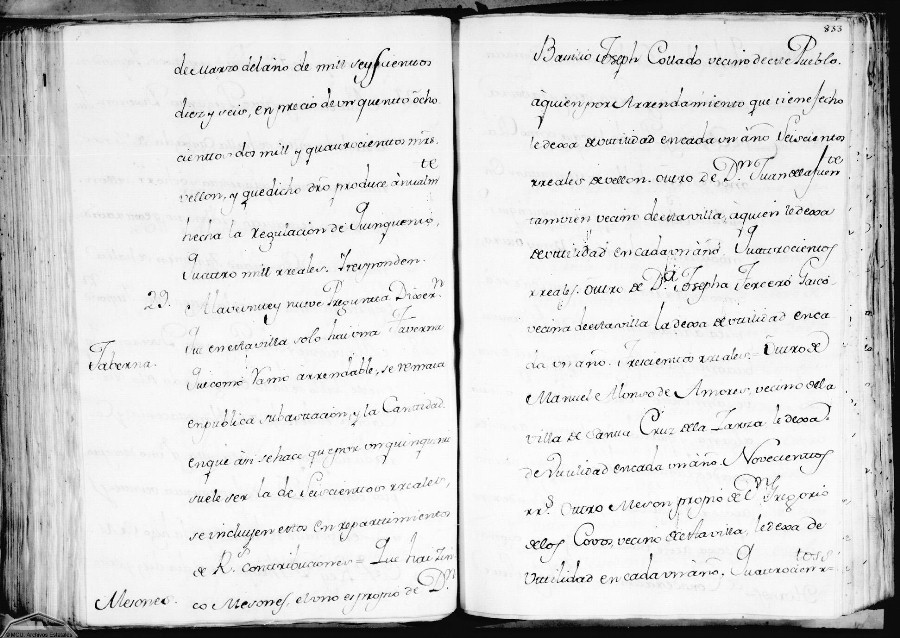 de Marzo del año de mill seyscientos
diez y seis, en precio de vn quento ôcho
cientos dos mill y quatrocientos mrs.
vellon, y que dicho dro produce ânualmte
hecha la Regulacion de Quinquenio,
Quatro mill rreales. Y responden.
29. A la veinte y nueve Pregunta Dixern
Taberna.
Que en esta villa solo hai vna Taverna
Que como Ramo arrendable, se remata
en publica subastacion, y la Cantidad
en que âsi se hace que por vn quinquenio
suele ser la de seiscientos rreales,
se incluyen estos en repartimiento
de Rs. contribuciones = Que hai Zin
Mesones.
co Mesones, el vno es propio de Dn.
833
Bauisio Joseph Collado vecino de este Pueblo.
âquien por Arrendamiento que tiene fecho
le dexa de vtilidad en cada vn año Seiscientos
rreales de vellon. Ôtro de Dn. Juan de la fuente
tambien vecino de esta villa, âquien le dexa
de vtilidad en cada vn año Quatrocientos
rreales. Ôtro de Da. Josepha Tercero
vecina de esta villa la dexa de vtilidad en ca
da vn año. Trescientos rreales = Ôtro de
Manuel Alonso de Amores, vecino de la
villa de Santa Cruz de la Zarza, le dexa
de Vtilidad en cada vn año. Novecientos
rrs. Ôtro Meson propio de Dn. Gregorio
de los Covos, vecino de esta villa, le dexa de
Vtilidad en cada vn año. Quatrocientos rs
©MCU. Archivos Estatales